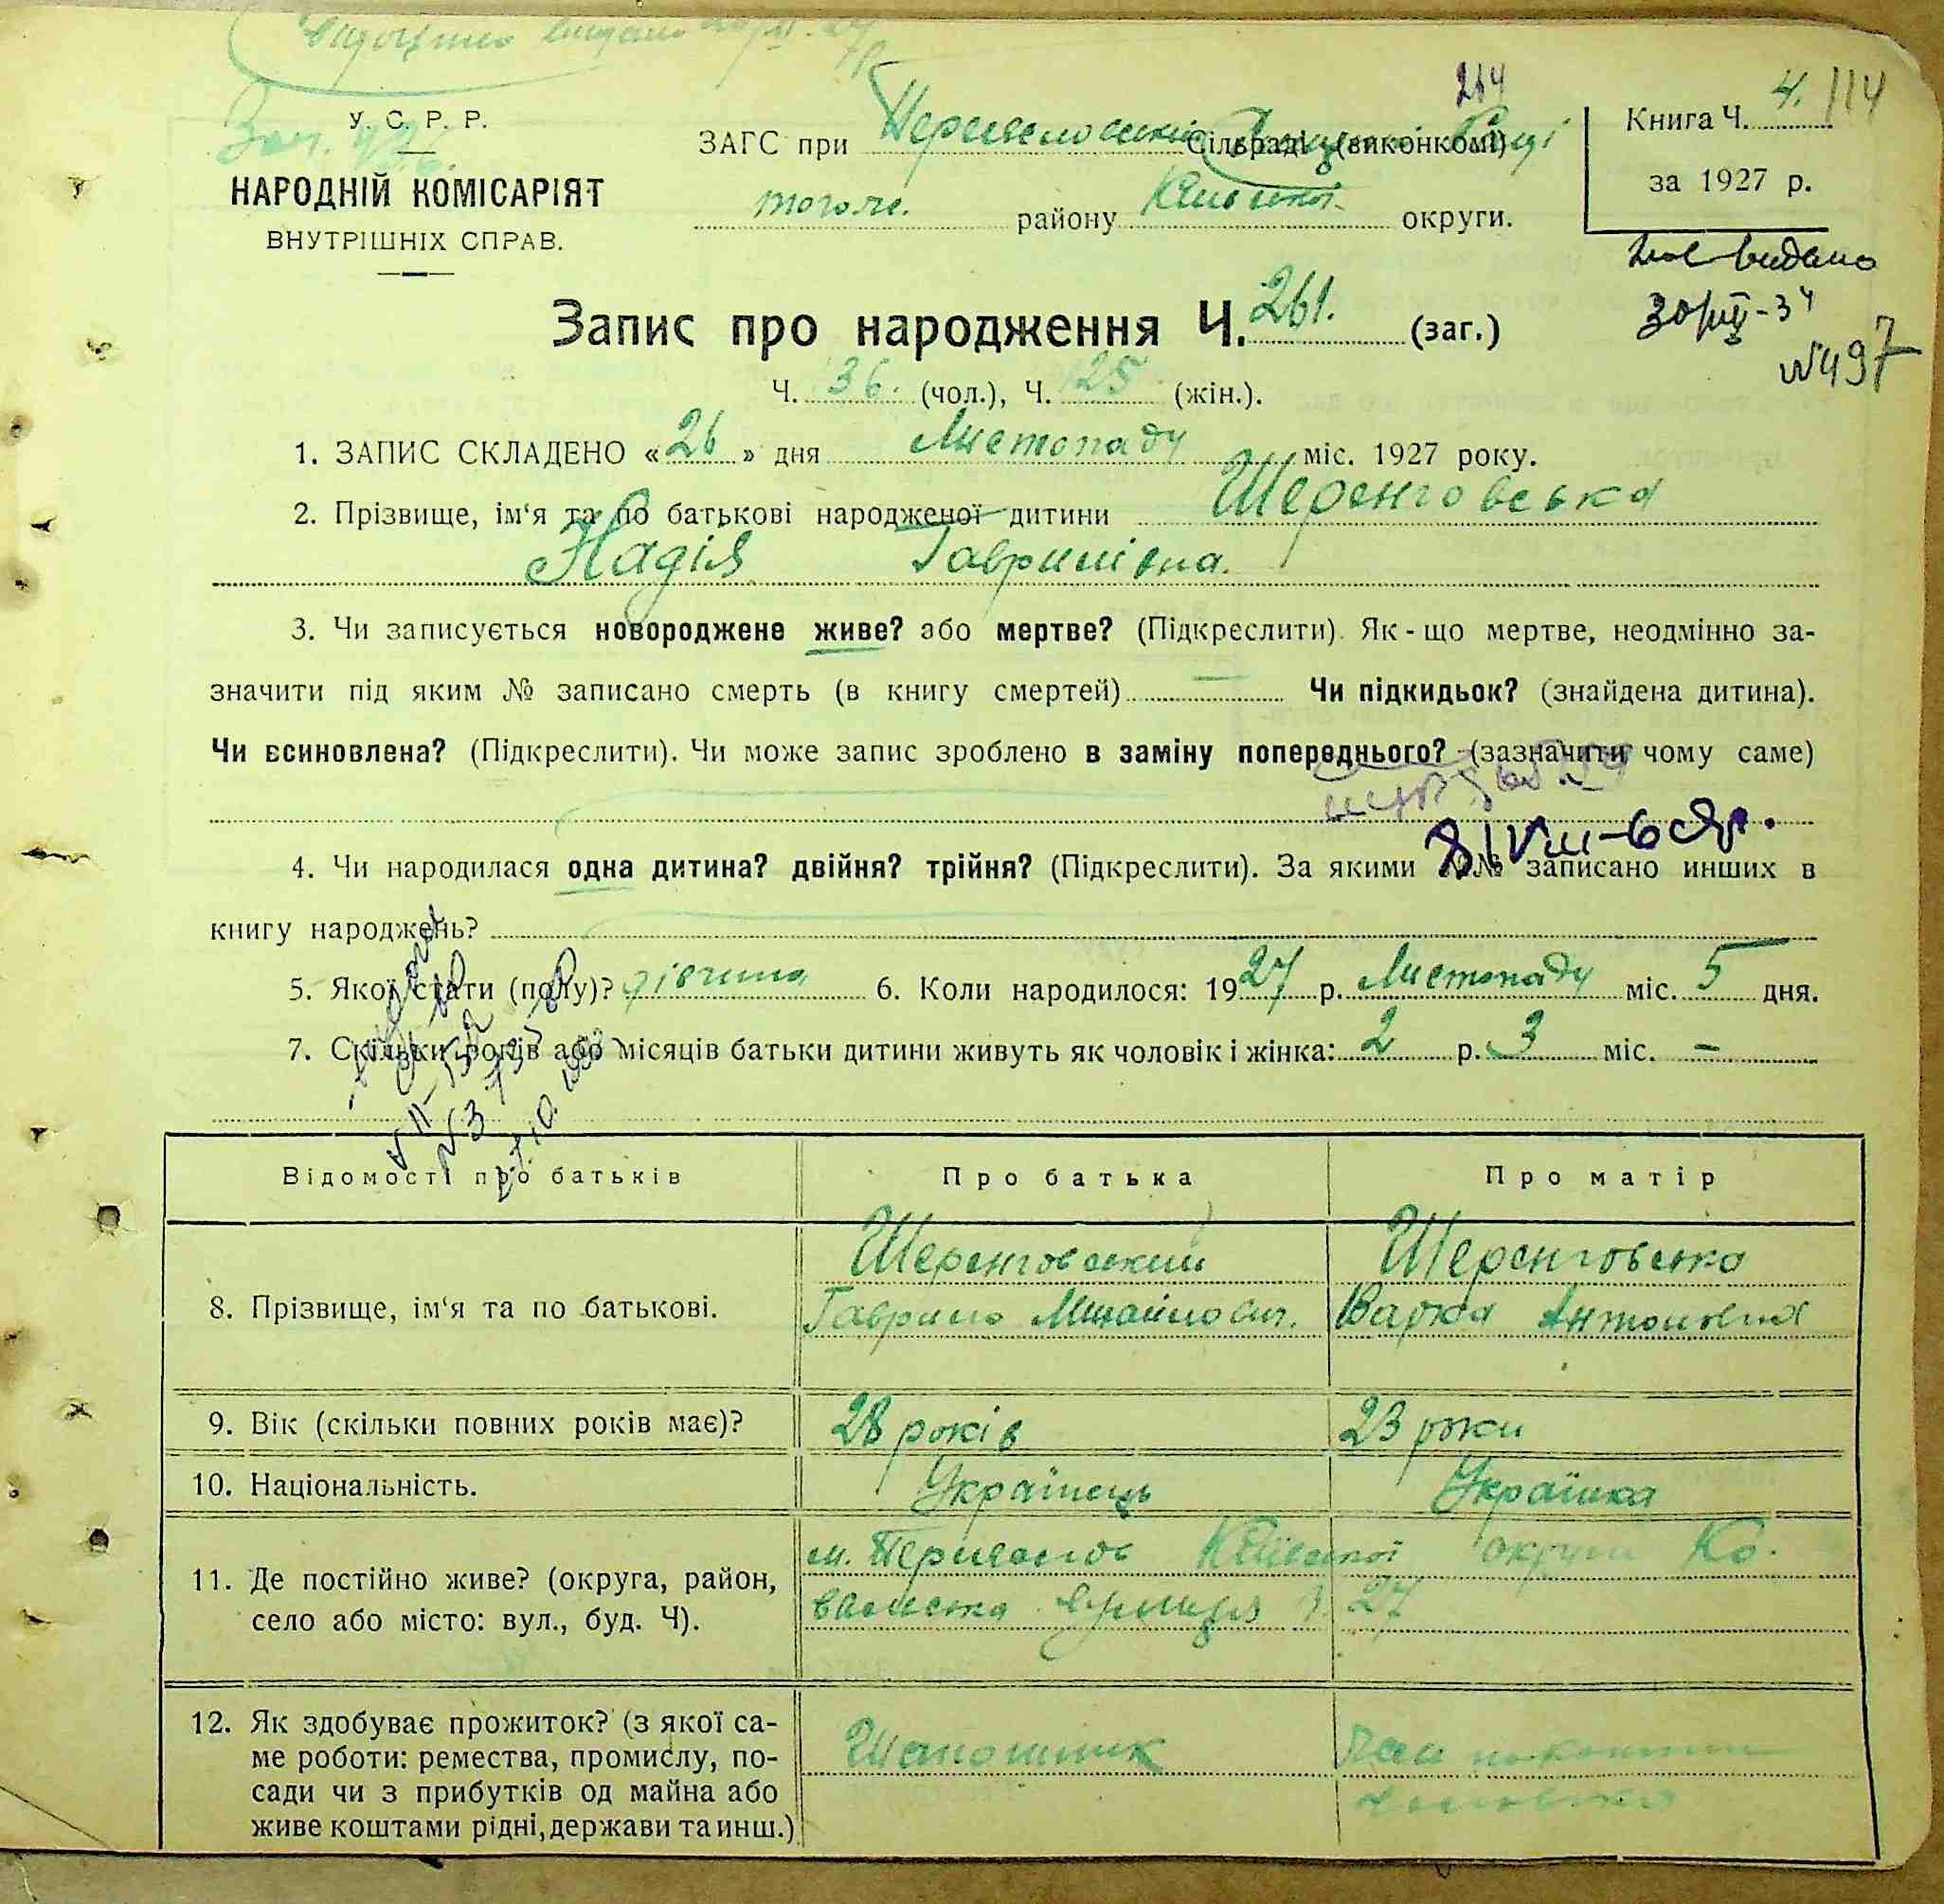 264
У. С. Р. Р.
НАРОДНІЙ КОМІСАРІЯТ
ВНУТРІШНІХ СПРАВ.
ЗАГС при Сільраді (виконкомі)
того ж. району Київської округи.
Книга Ч. 4. 114
за 1927 р.
видано
№497
Запис про народження Ч. 261. (заг.)
Ч. 136. (чол.), Ч. 125 (жін.).
1. ЗАПИС СКЛАДЕНО «26» дня Листопаду міс. 1927 року.
2. Прізвище, ім'я та по батькові народженої дитини Шеренговська
Надія Гаврилівна.
3. Чи записується новороджене живе? або мертве? (Підкреслити). Як-що мертве, неодмінно за-
значити під яким № записано смерть (в книгу смертей) — Чи підкидьок? (знайдена дитина).
Чи всиновлена? (Підкреслити). Чи може запис зроблено в заміну попереднього? (зазначити чому саме)
4. Чи народилася одна дитина? двійня? трійня? (Підкреслити). За якими №№ записано инших в
книгу народжень?
5. Якої стати (полу)? дівчина 6. Коли народилося: 1927 р. Листопаду міс. 5 дня.
7. Скільки років або місяців батьки дитини живуть як чоловік і жінка: 2 р. 3 міс. –
Відомості про батьків Про батька Про матір
8. Прізвище, ім'я та по батькові. Шеренговський Гаврило Михайлович. Шеренговська Варка Антонівна
9. Вік (скільки повних років має)? 28 років 23 роки
10. Національність. Українець Українка
11. Де постійно живе? (округа, район,
село або місто: вул., буд. Ч).
м. Переяслов Київської округи Ко-
вальська вулиця 27
12. Як здобуває прожиток? (з якої са-
ме роботи: ремества, промислу, по-
сади чи з прибутків од майна або
живе коштами рідні, держави та инш.)
Шапошник